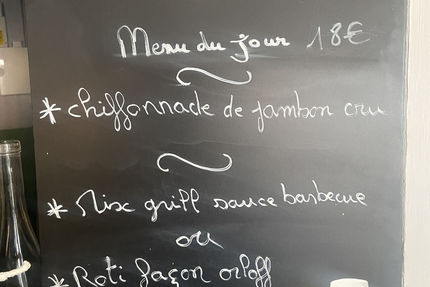 Menu du jour 18€
* chiffonnade de jambon cru
* Mix grill sauce barbecue
ou
* Roti façon orloff